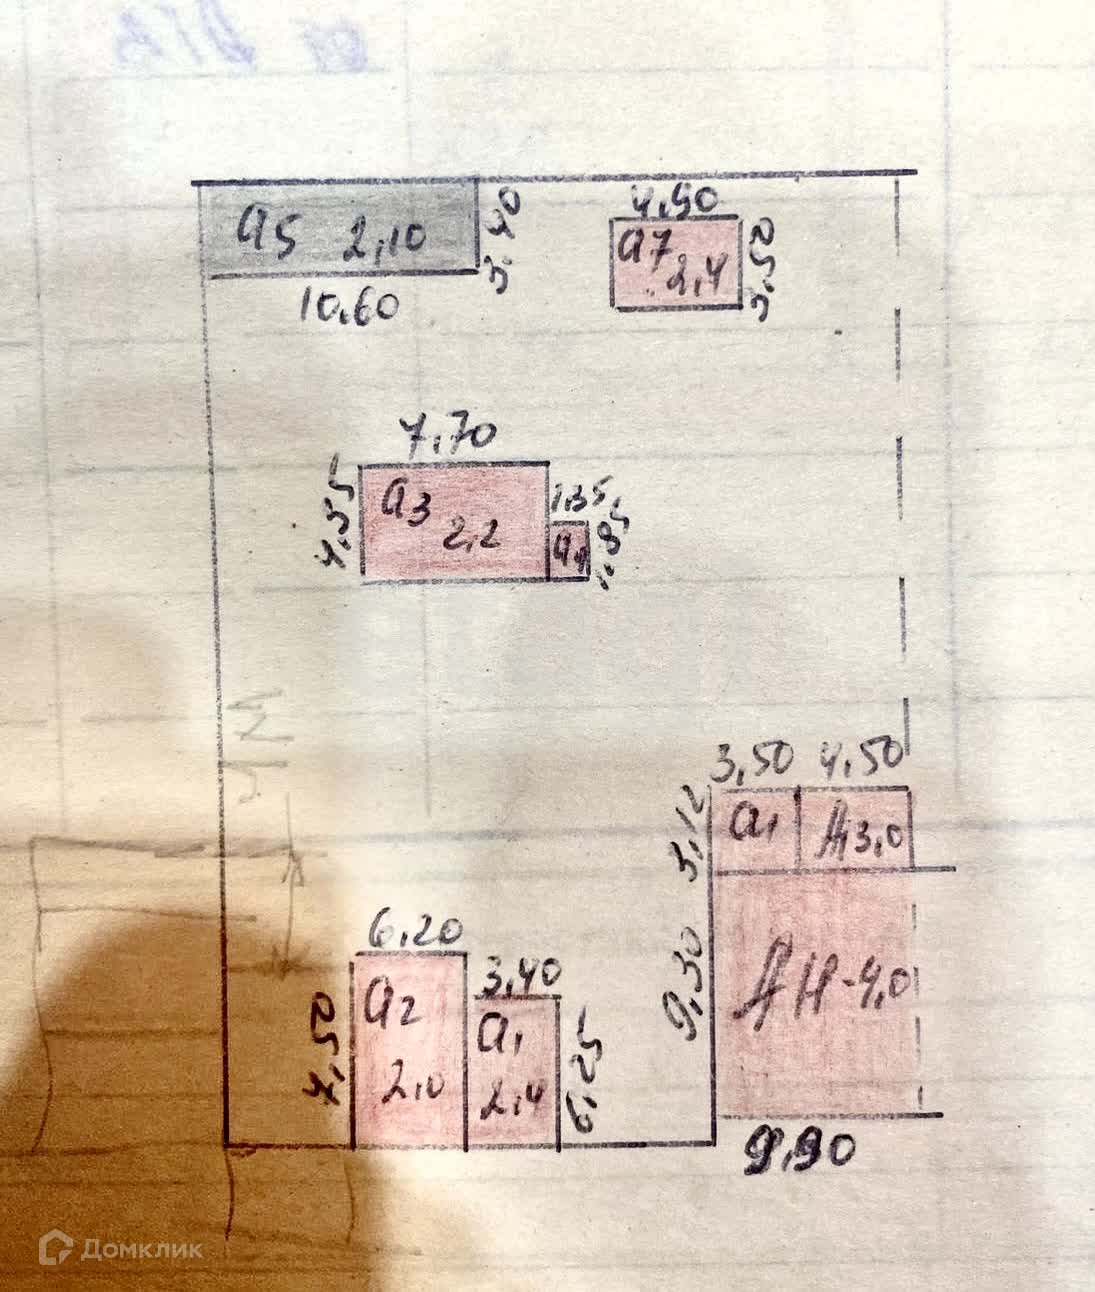 а5 2,10
3,40
10,60
4,90
а7
2,4
3,50
7,70
4,55
а3
2,2
1,35
а4
1,85
3,50 4,50
5,12
а1
А1 3,0
9,30
А Н-4,0
9,90
6,20
7,50
а2
2,0
3,40
а1
2,4
6,25
Домклик